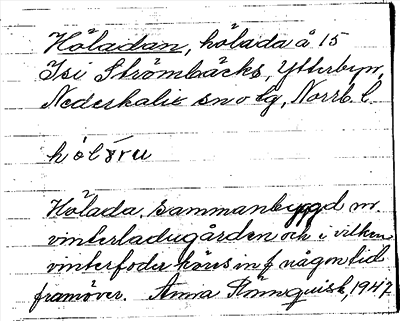 Höladan, hölada å 15
Isi Strömbäcks, Ytterbyn,
Nederkalix sn o tg, Norrb. l.
Hölada, sammanbyggd m
vinterladugården och i vilken
vinterfoder köres in f någon tid
framöver. Anna Rönnquist, 1947